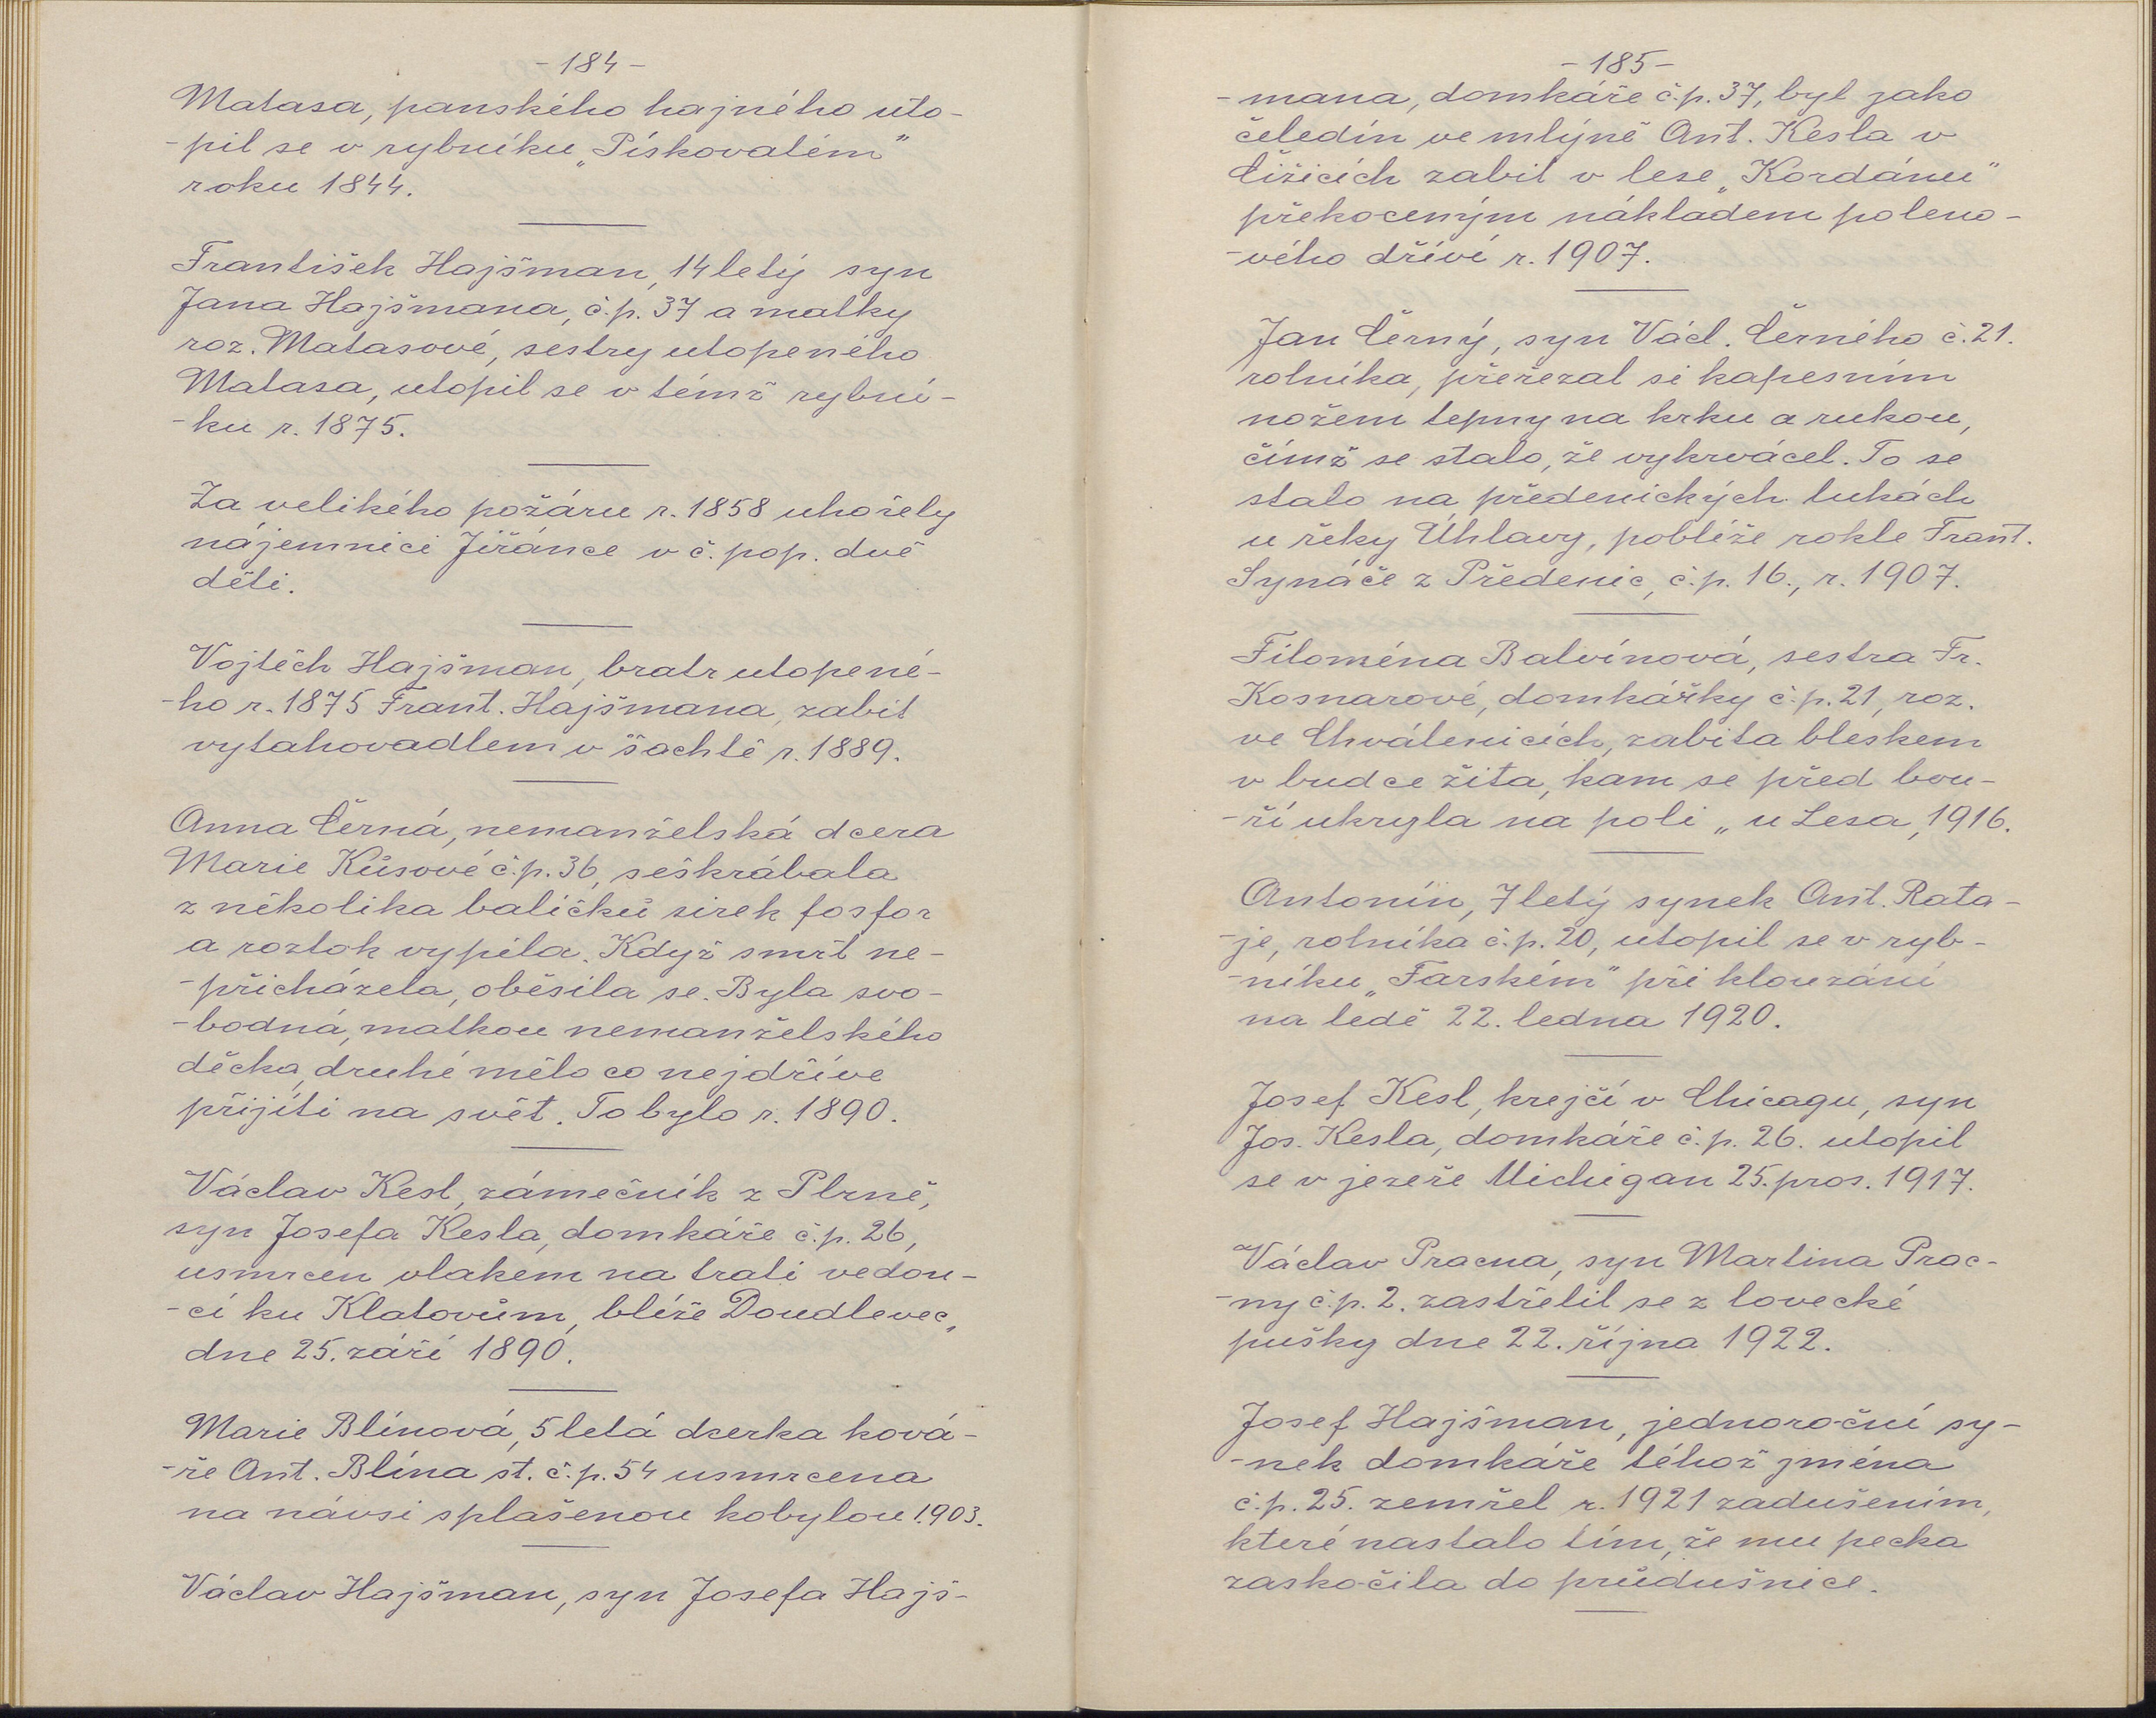 - 184 -
Matasa, panského hajného uto-
-pil se v rybníku „Pískovatém"
roku 1844.
František Hajšman, 14letý syn
Jana Hajšmana, č.p. 37 a matky
roz. Matasové, sestry utopeného
Matasa, utopil se v témž rybní-
-ku r. 1875.
Za velikého požáru r. 1858 uhořely
nájemnici Jiřánce v č. pop. dvě
děti.
Vojtěch Hajšman, bratr utopené-
-ho r. 1875 Frant. Hajšmana, zabit
vytahovadlem v šachtě r. 1889.
Anna Černá, nemanželská dcera
Marie Kůsové č.p. 36, seškrábala
z několika balíčků sirek fosfor
a roztok vypila. Když smrt ne-
-přicházela, oběsila se. Byla svo-
-bodná, matkou nemanželského
děcka, druhé mělo co nejdříve
přijíti na svět. To bylo r. 1890.
Václav Kesl, zámečník z Plzně,
syn Josefa Kesla, domkáře č.p. 26,
usmrcen vlakem na trati vedou-
-cí ku Klatovům, blíže Doudlevec,
dne 25. září 1890.
Marie Blínová, 5letá dcerka ková-
-ře Ant. Blína st. č.p. 54 usmrcena
na návsi splašenou kobylou 1903.
Václav Hajšman, syn Josefa Hajš-
- 185 -
-mana, domkáře č.p. 37, byl jako
čeledín ve mlýně Ant. Kesla v
Čižicích zabit v lese „Kordánu"
překoceným nákladem poleno-
-vého dříví r. 1907.
Jan Černý, syn Václ. Černého č. 21.
rolníka, přeřezal si kapesním
nožem tepny na krku a rukou,
čímž se stalo, že vykrvácel. To se
stalo na předenických lukách
u řeky Úhlavy, poblíže rokle Frant.
Synáče z Předenic, č.p. 16., r. 1907.
Filoména Balvínová, sestra Fr.
Kosnarové, domkářky č.p. 21, roz.
ve Chválenicích, zabita bleskem
v budce žita, kam se před bou-
-ří ukryla na poli „u Lesa, 1916.
Antonín, 7letý synek Ant. Rata-
-je, rolníka č.p. 20, utopil se v ryb-
-níku „Farském" při klouzání
na ledě 22. ledna 1920.
Josef Kesl, krejčí v Chicagu, syn
Jos. Kesla, domkáře č.p. 26. utopil
se v jezeře Michigan 25. pros. 1917.
Václav Pracna, syn Martina Prac-
-ny č.p. 2. zastřelil se z lovecké
pušky dne 22. října 1922.
Josef Hajšman, jednoroční sy-
-nek domkáře téhož jména
č.p. 25. zemřel r. 1921 zadušením,
které nastalo tím, že mu pecka
zaskočila do průdušnice.